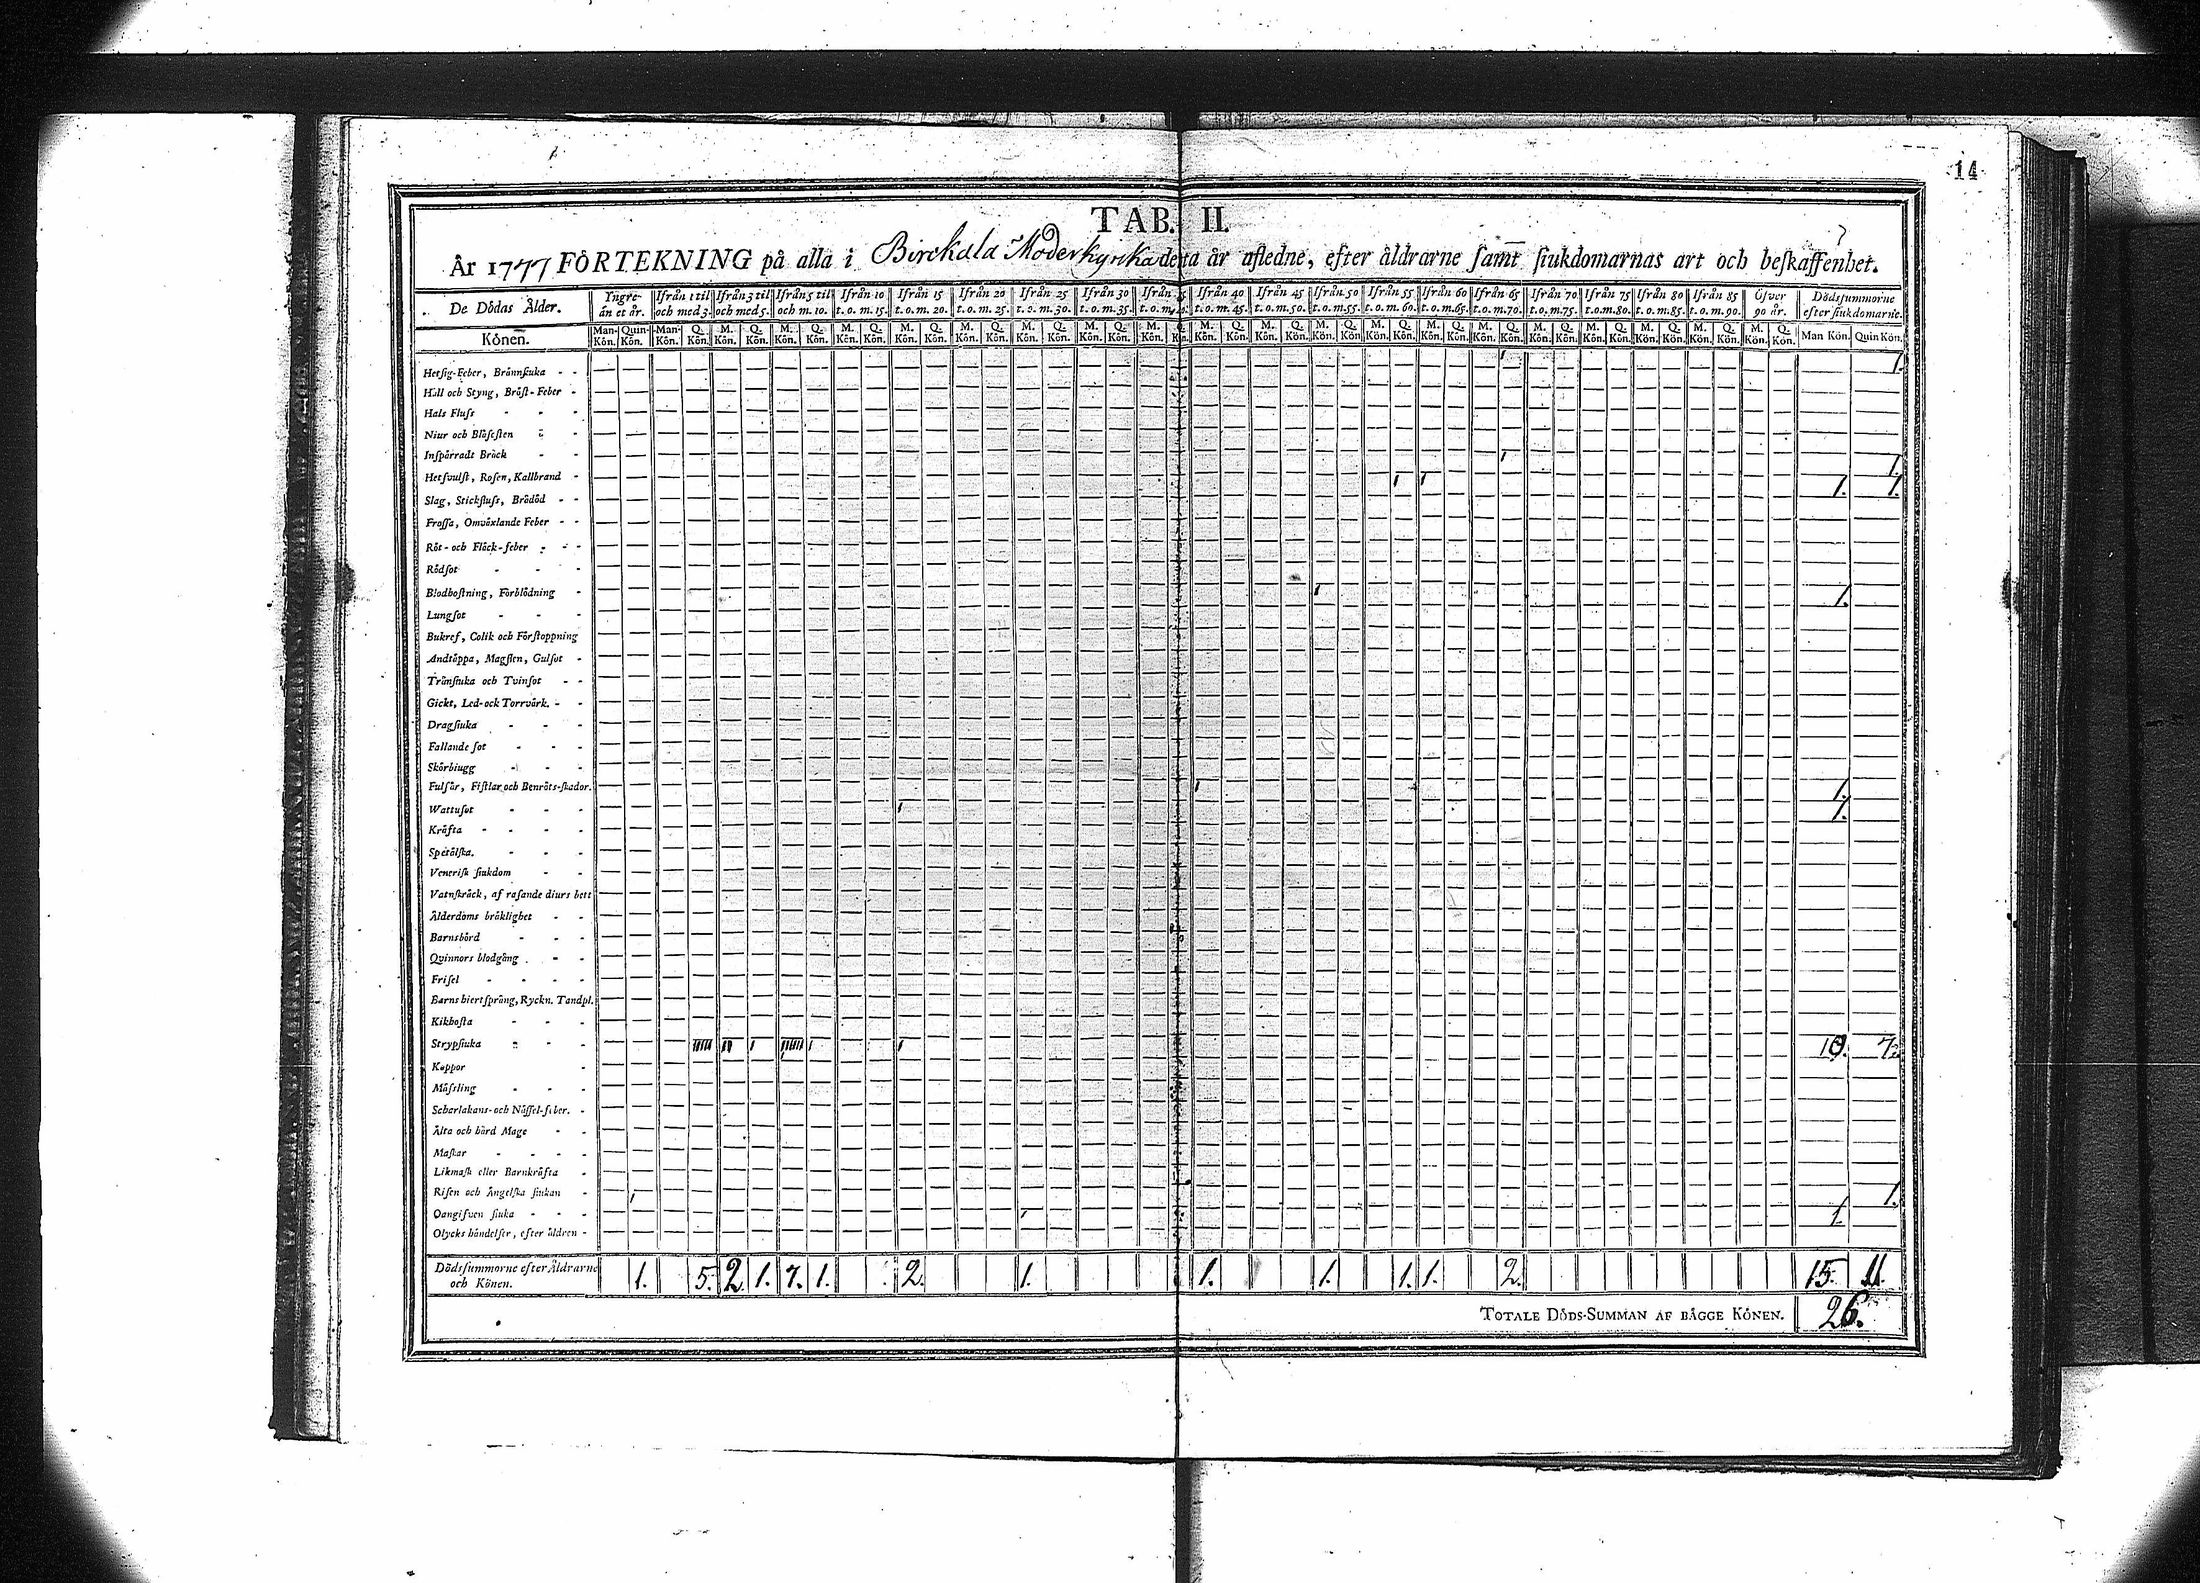 14
TAB. II.
År 1777 FÖRTEKNING på alla i Birckala Moderkyrka detta år afledne, efter åldrarne samt siukdomarnas art och beskaffenhet.
De Dödas Ålder. Yngre än et år. Ifrån 1 til och med 3. Ifrån 3 til och med 5. Ifrån 5 til och m. 10. Ifrån 10 t. o. m. 15. Ifrån 15 t. o. m. 20. Ifrån 20 t. o. m. 25. Ifrån 25 t. o. m. 30. Ifrån 30 t. o. m. 35. Ifrån 35 t. o. m. 40. Ifrån 40 t. o. m. 45. Ifrån 45 t. o. m. 50. Ifrån 50 t. o. m. 55. Ifrån 55 t. o. m. 60. Ifrån 60 t. o. m. 65. Ifrån 65 t. o. m. 70. Ifrån 70 t. o. m. 75. Ifrån 75 t. o. m. 80. Ifrån 80 t. o. m. 85. Ifrån 85 t. o. m. 90. Öfver 90 år. Dödssummorne efter siukdomarne.
Könen. Man-Kön. Quin-Kön. Man-Kön. Q. Kön. M. Kön. Q. Kön. M. Kön. Q. Kön. M. Kön. Q. Kön. M. Kön. Q. Kön. M. Kön. Q. Kön. M. Kön. Q. Kön. M. Kön. Q. Kön. M. Kön. Q. Kön. M. Kön. Q. Kön. M. Kön. Q. Kön. M. Kön. Q. Kön. M. Kön. Q. Kön. M. Kön. Q. Kön. M. Kön. Q. Kön. M. Kön. Q. Kön. M. Kön. Q. Kön. M. Kön. Q. Kön. M. Kön. Q. Kön. M. Kön. Q. Kön. Man Kön. Quin Kön.
Hetsig-Feber, Brännsiuka - - 1 1.
Håll och Styng, Bröst-Feber -
Hals Fluss - - -
Niur och Blåsesten - -
Inspärradt Bråck - -
Hetsvulst, Rosen, Kallbrand - 1 1.
Slag, Stickfluss, Brådöd - - 1 1 1. 1.
Frossa, Omväxlande Feber - -
Röt- och Fläck-feber - - -
Rödsot - - -
Blodhostning, Förblödning -
Lungsot - - - 1 1.
Bukref, Colik och Förstoppning
Andtäppa, Magsten, Gulsot -
Trånsiuka och Tvinsot - -
Gickt, Led- och Torrvärk. - -
Dragsiuka - - -
Fallande sot - - -
Skörbiugg - - -
Fulsår, Fistlar och Benröts-skador. 1 1.
Wattusot - - - 1 1.
Kräfta - - - -
Spetälska. - - -
Venerisk siukdom - -
Vatnskräck, af rasande diurs bett
Ålderdoms bräklighet - -
Barnsbörd - - -
Qvinnors blodgång - -
Frisel - - - -
Barns hiertsprång, Ryckn. Tandpl.
Kikhosta - - -
Strypsiuka - - - IIIII II I IIIIIII I I 10. 7.
Koppor -
Mässling - - -
Scharlakans- och Nässel-feber. -
Älta och hård Mage - -
Maskar - - - -
Likmask eller Barnkräfta -
Risen och Ängelska siukan -
Oangifven siuka - - - 1 1.
Olycks händelser, efter åldren - 1 1
Dödssummorne efter Åldrarne och Könen. 1. 5. 2 1. 7. 1. 2. 1. 1. 1. 1. 1. 2. 15. 11.
TOTALE DÖDS-SUMMAN AF BÄGGE KÖNEN. 26.